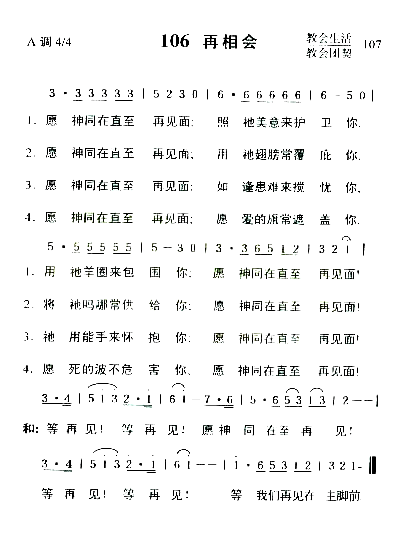 A 调 4/4 106 再相会 教会生活 107
教会团契
3·3 3 3 3 3 | 5 2 3 0 | 6·6 6 6 6 6 | 6-5 0 |
1. 愿 神同在直至 再见面; 照 祂美意来护 卫你.
2. 愿 神同在直至 再见面; 用 祂翅膀常覆 庇你.
3. 愿 神同在直至 再见面; 如 逢患难来搅 忧你.
4. 愿 神同在直至 再见面; 愿 爱的旗常遮 盖你.
5·5 5 5 5 5 | 5-3 0 | 3·3 6 5 1 2 | 3 2 1 |
1. 用 祂羊圈来包 围你; 愿 神同在直至 再见面!
2. 将 祂吗哪常供 给你; 愿 神同在直至 再见面!
3. 祂 用能手来怀 抱你; 愿 神同在直至 再见面!
4. 愿 死的波不危 害你; 愿 神同在直至 再见面!
3·4 | 5 1 3 2·1 | 6 1 - 7·6 | 5·1 6 5 3 5 3 | 2--
和: 等 再 见! 等 再 见! 愿 神 同 在 至 再 见!
3·4 | 5 1 3 2·1 | 6 1 -- | 1·6 5 3 1 2 | 3 2 1 -
等 再 见! 等 再 见! 等 我们再见在 主脚前